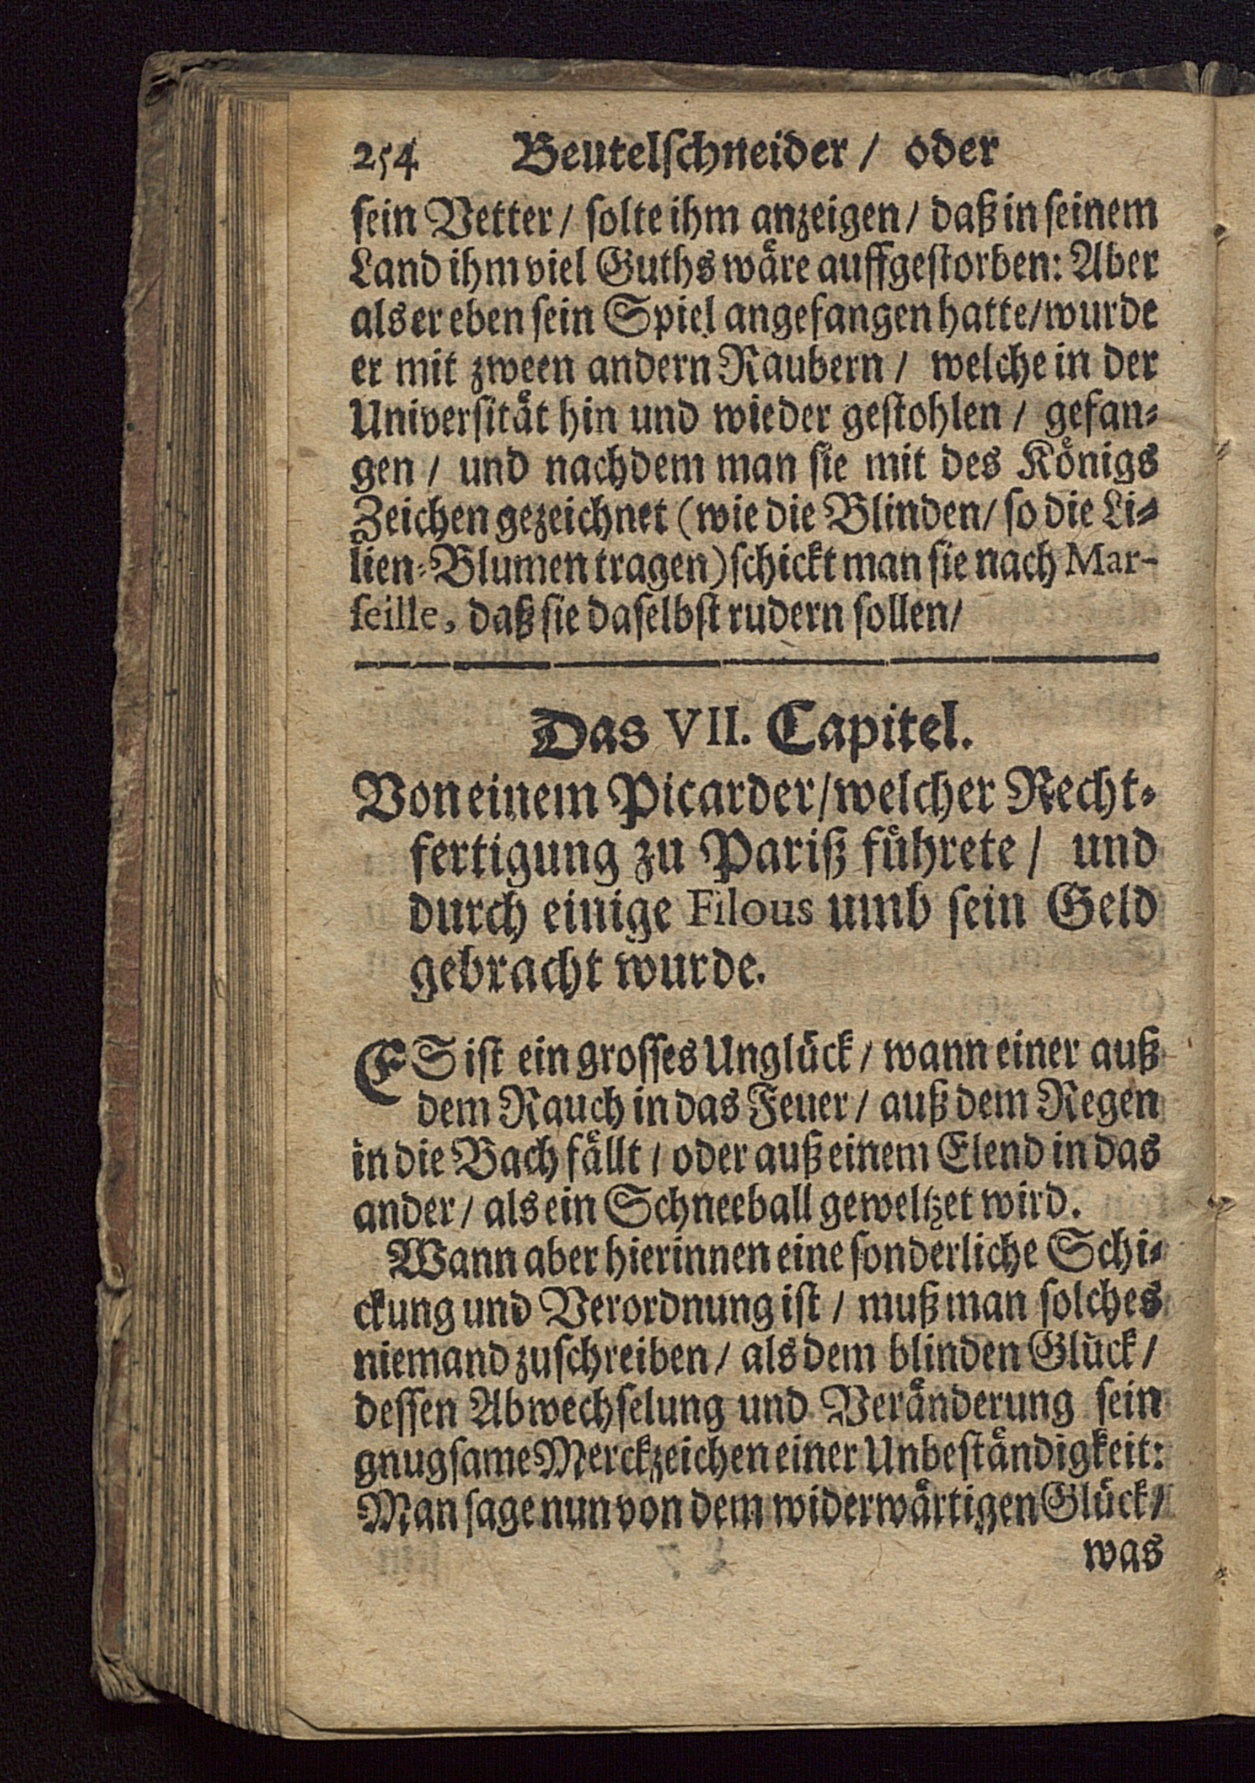 254 Beutelſchneider / oder
ſein Vetter / ſolte ihm anzeigen / daß in ſeinem
Land ihm viel Guths wåre auffgeſtorben: Aber
als er eben ſein Spiel angefangen hatte / wurde
er mit zween andern Raubern / welche in der
Univerſitåt hin und wieder geſtohlen / gefan-
gen / und nachdem man ſie mit des Königs
Zeichen gezeichnet (wie die Blinden / ſo die Li-
lien-Blumen tragen) ſchickt man ſie nach Mar-
ſeille, daß ſie daſelbſt rudern ſollen /
Das VII. Capitel.
Von einem Picarder / welcher Recht-
fertigung zu Pariß fůhrete / und
durch einige Filous umb ſein Geld
gebracht wurde.
ES iſt ein groſſes Unglůck / wann einer auß
dem Rauch in das Feuer / auß dem Regen
in die Bach fållt / oder auß einem Elend in das
ander / als ein Schneeball geweltzet wird.
Wann aber hierinnen eine ſonderliche Schi-
ckung und Verordnung iſt / muß man ſolches
niemand zuſchreiben / als dem blinden Glůck /
deſſen Abwechſelung und Verånderung ſein
gnugſame Merckzeichen einer Unbeſtåndigkeit:
Man ſage nun von dem widerwårtigen Glůck /
was